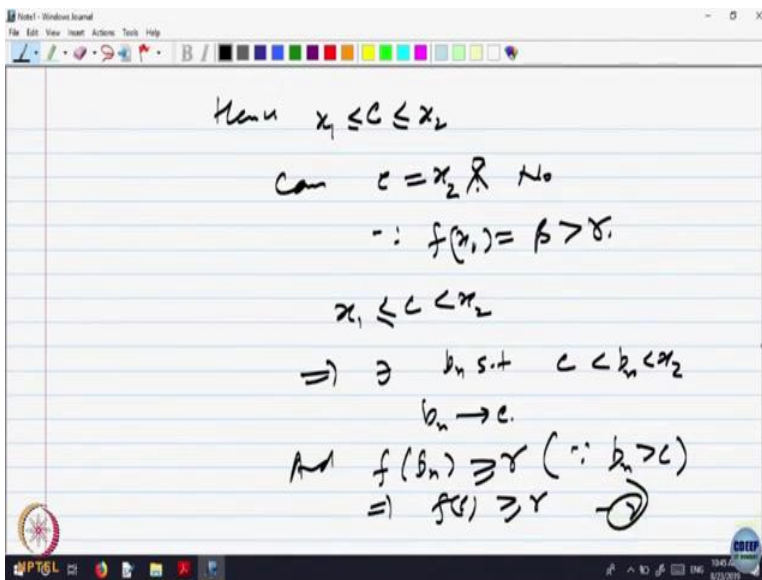 Note1 - Windows Journal
File Edit View Insert Actions Tools Help
B I
Hence x₁ ≤ c ≤ x₂
Can c = x₂ ? No
∵ f(x₁) = β > γ.
x₁ ≤ c < x₂
⇒ ∃ bₙ s.t c < bₙ < x₂
bₙ → c.
And f(bₙ) ≥ γ (∵ bₙ > c)
⇒ f(c) ≥ γ
NPTEL
ENG
8/23/2019
CDEEP